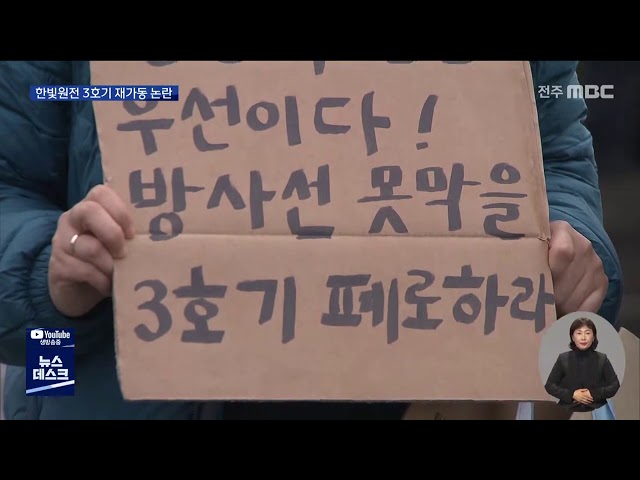 한빛원전 3호기 재가동 논란
전주 MBC
우선이다!
방사선 못막을
3호기 폐로하라
YouTube
생방송중
뉴스
데스크